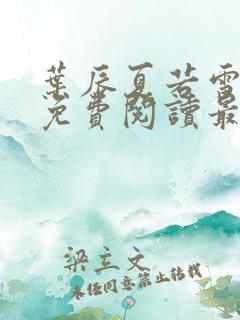 葉辰夏若雪
免費閱讀最
梁立文
未經同意禁止轉載